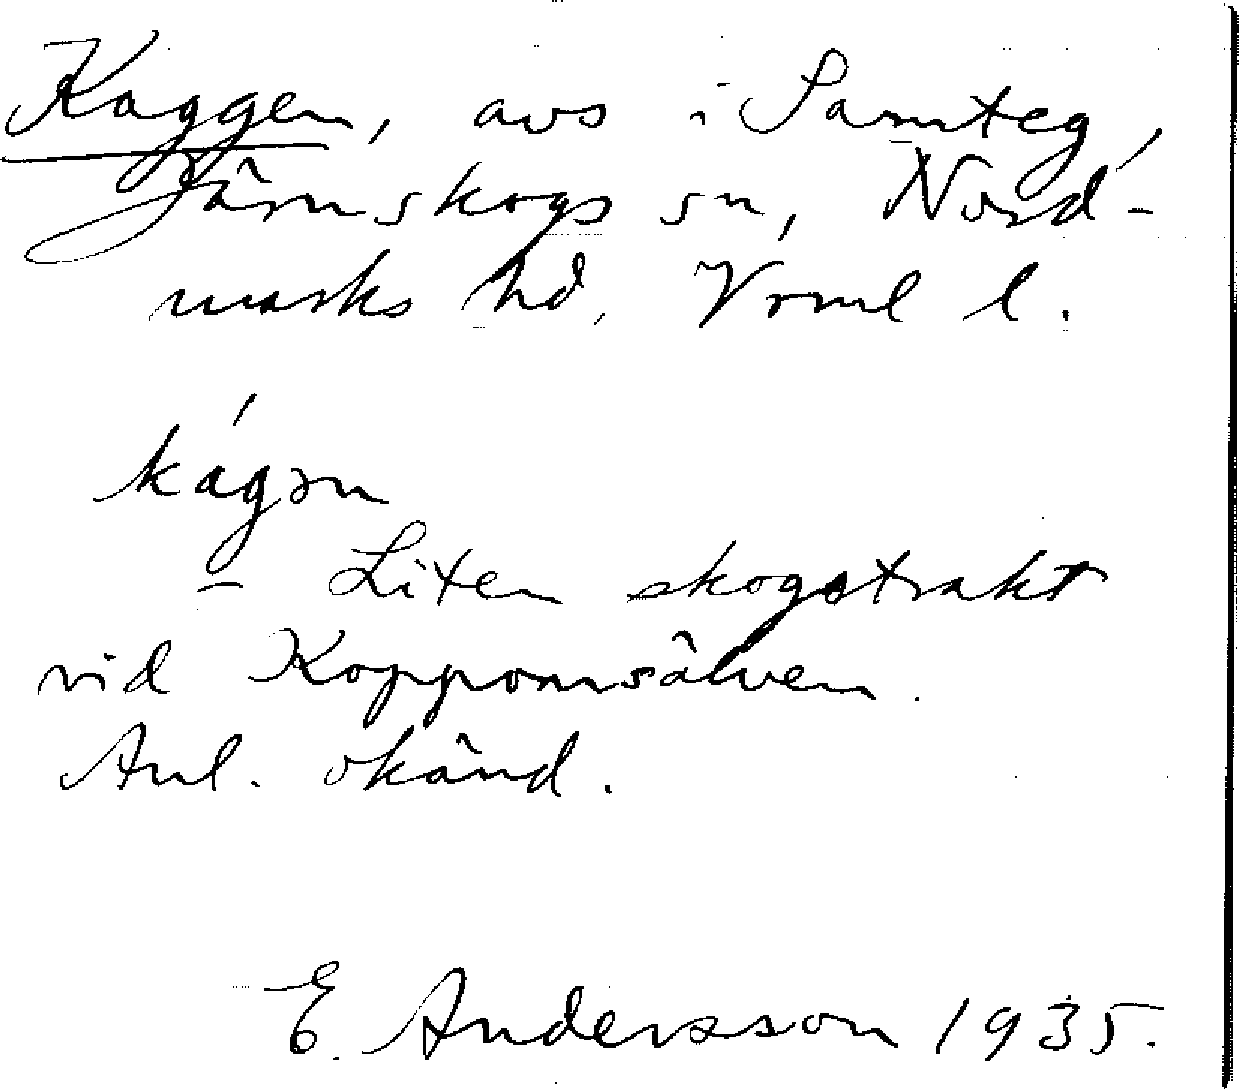 Kaggen, avs i Samteg,
Järnskogs sn, Nord-
marks hd, Vrml l.
kágən
– Liten skogstrakt
vid Koppomsälven.
Anl. okänd.
E. Andersson 1935.